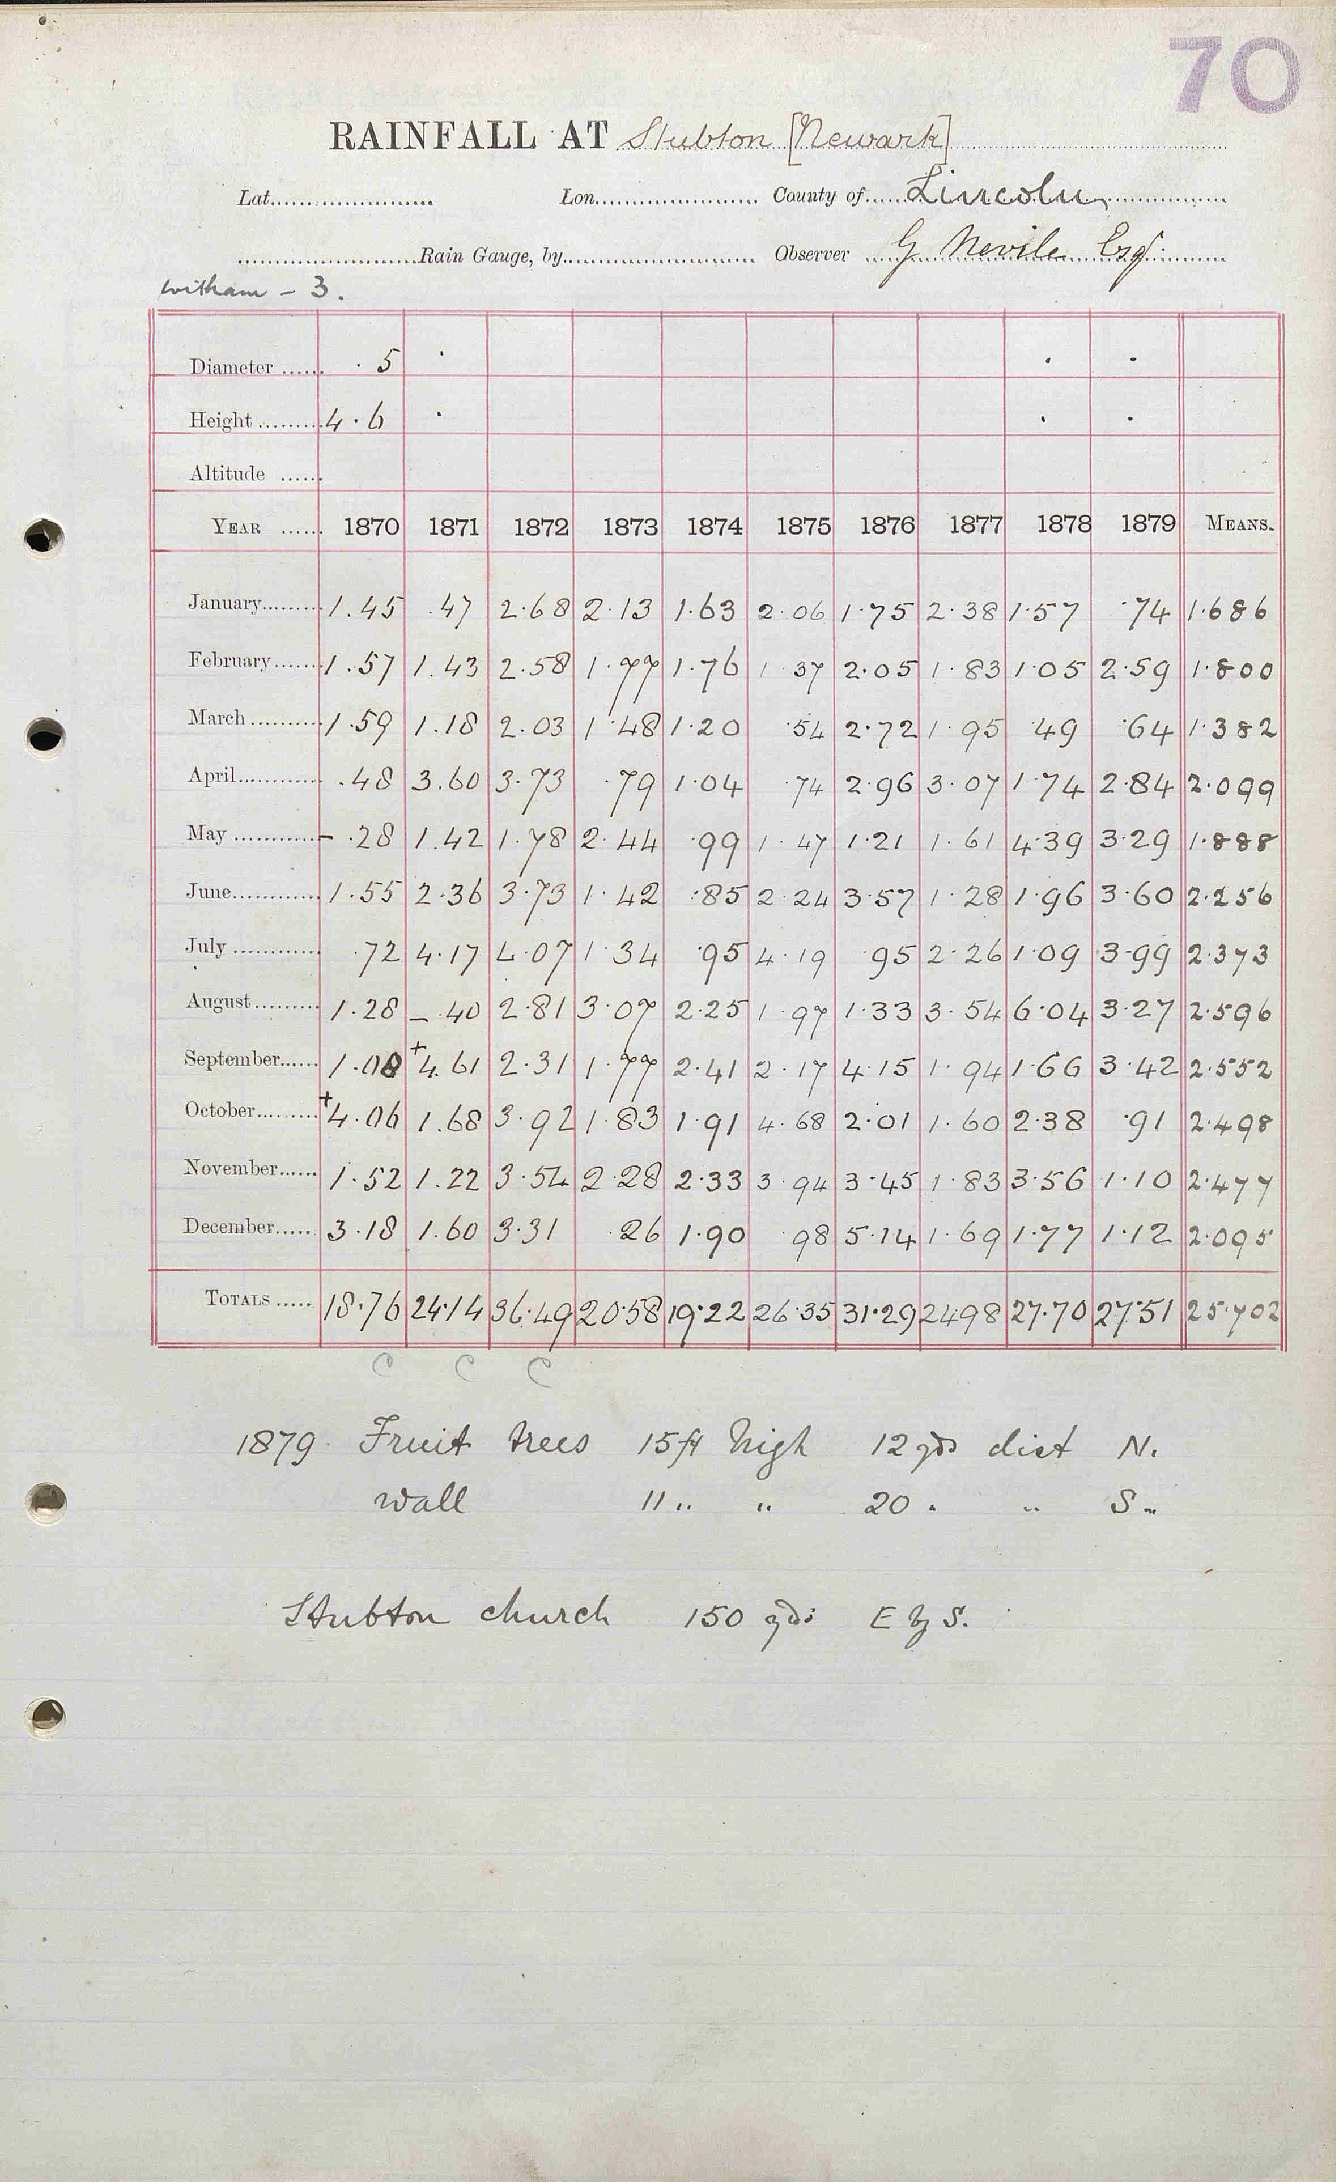 70
RAINFALL AT Stubton [Newark]
Lat. Lon. County of Lincoln
Rain Gauge, by Observer G Nevile Esq
Witham - 3.
Diameter . 5
Height 4.6
Altitude
YEAR 1870 1871 1872 1873 1874 1875 1876 1877 1878 1879 MEANS.
January 1.45 .47 2.68 2.13 1.63 2.06 1.75 2.38 1.57 .74 1.686
February 1.57 1.43 2.58 1.77 1.76 1.37 2.05 1.83 1.05 2.59 1.800
March 1.59 1.18 2.03 1.48 1.20 .54 2.72 1.95 .49 .64 1.382
April .48 3.60 3.73 .79 1.04 .74 2.96 3.07 1.74 2.84 2.099
May - .28 1.42 1.78 2.44 .99 1.47 1.21 1.61 4.39 3.29 1.888
June 1.55 2.36 3.73 1.42 .85 2.24 3.57 1.28 1.96 3.60 2.256
July .72 4.17 4.07 1.34 .95 4.19 .95 2.26 1.09 3.99 2.373
August 1.28 - .40 2.81 3.07 2.25 1.97 1.33 3.54 6.04 3.27 2.596
September 1.08 +4.61 2.31 1.77 2.41 2.17 4.15 1.94 1.66 3.42 2.552
October +4.06 1.68 3.92 1.83 1.91 4.68 2.01 1.60 2.38 .91 2.498
November 1.52 1.22 3.54 2.28 2.33 3.94 3.45 1.83 3.56 1.10 2.477
December 3.18 1.60 3.31 .26 1.90 .98 5.14 1.69 1.77 1.12 2.095
TOTALS 18.76 24.14 36.49 20.58 19.22 26.35 31.29 24.98 27.70 27.51 25.702
C C C
1879 Fruit trees 15 ft high 12 yds dist N.
wall 11 " " 20 " " S "
Stubton church 150 yds E by S.